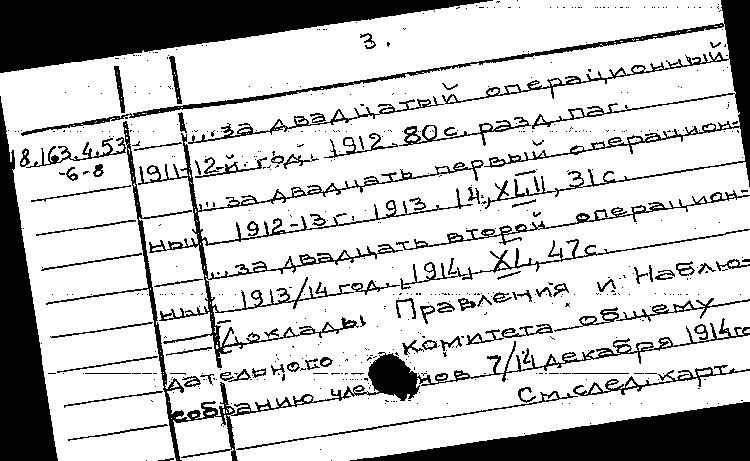 3.
...за двадцатый операционный
18.163.4.53-
-6-8
1911-12-й год. 1912. 80с. разд. паг.
...за двадцать первый операцион-
ный 1912-13г. 1913. 14, XLII, 31с.
...за двадцать второй операцион-
ный 1913/14 год. [1914] XL, 47с.
[Доклады Правления и Наблю-
дательного комитета общему
собранию членов 7/14 декабря 1914го
См. след. карт.